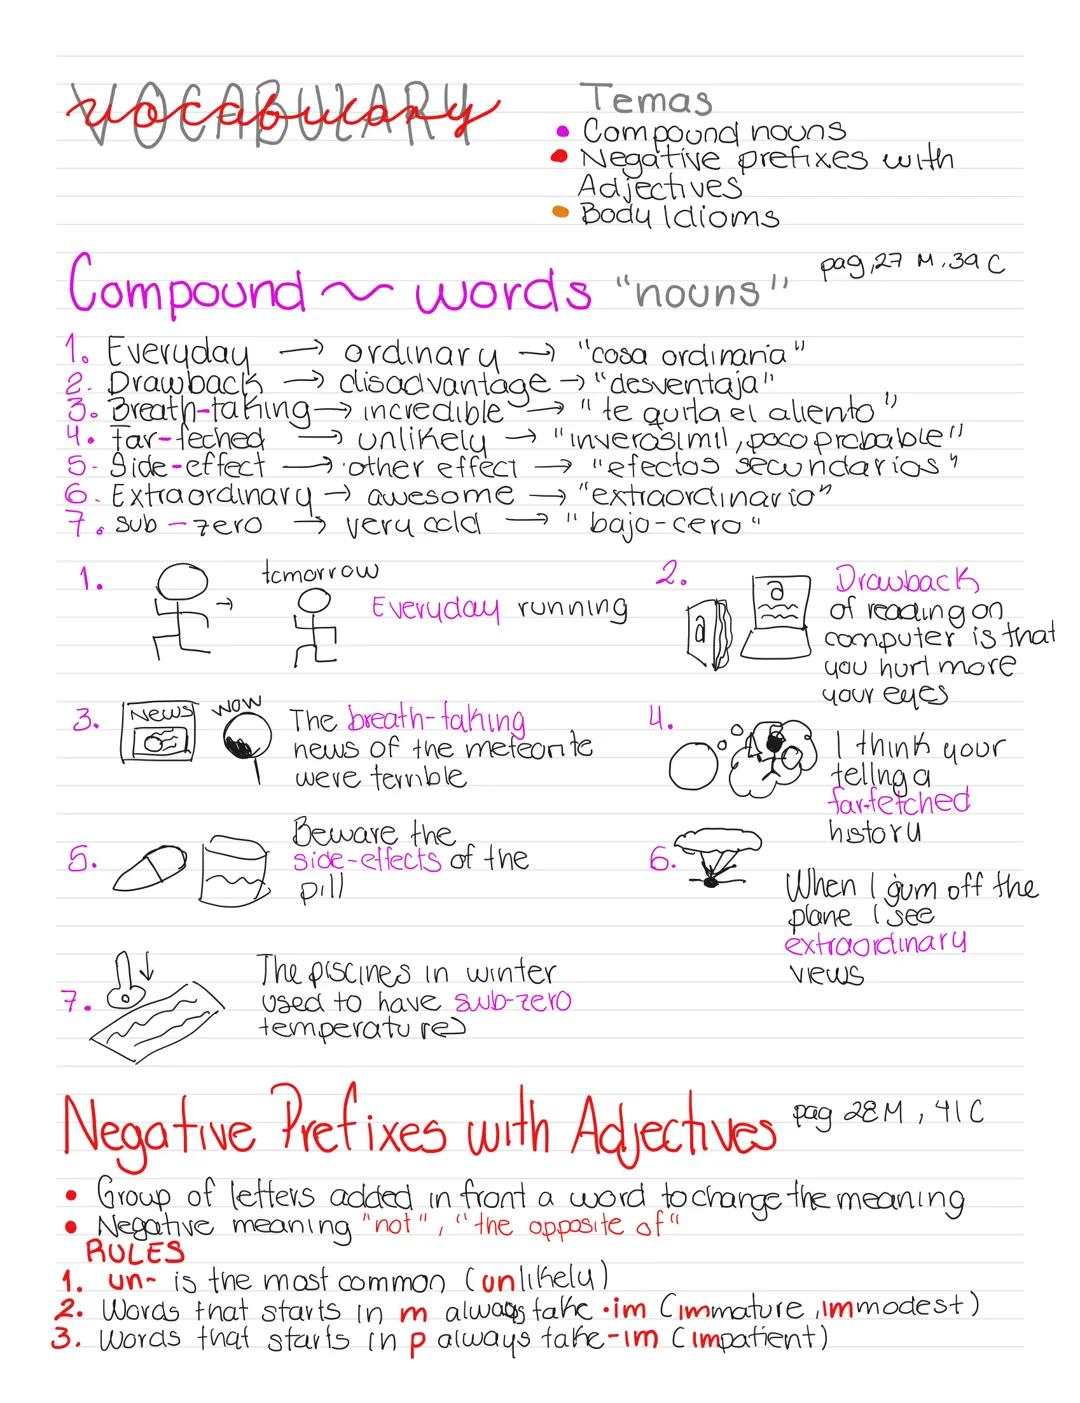 VOCABULARY
vocabulary
Temas
• Compound nouns
• Negative prefixes with
Adjectives
• Body Idioms
Compound ~ words "nouns"
pag,27 M,39 C
1. Everyday → ordinary → "cosa ordinaria"
2. Drawback → disadvantage → "desventaja"
3. Breath-taking → incredible → "te quita el aliento"
4. far-feched → unlikely → "inverosimil, poco probable"
5- Side-effect → other effect → "efectos secundarios"
6. Extraordinary → awesome → "extraordinario"
7. sub-zero → very cold → "bajo-cero"
1.
tomorrow
→
Everyday running
2.
a
a
Drawback
of reading on
computer is that
you hurt more
your eyes
3.
News
wow
The breath-taking
news of the meteorite
were terrible
4.
I think your
tellng a
far-fetched
history
5.
Beware the
side-effects of the
pill
6.
When I gum off the
plane I see
extraordinary
views
7.
The piscines in winter
used to have sub-zero
temperatures
Negative Prefixes with Adjectives
pag 28M, 41C
• Group of letters added in front a word to change the meaning
• Negative meaning "not", "the opposite of"
RULES
1. un- is the most common (unlikely)
2. Words that starts in m always take -im (immature, immodest)
3. Words that starts in p always take -im (impatient)